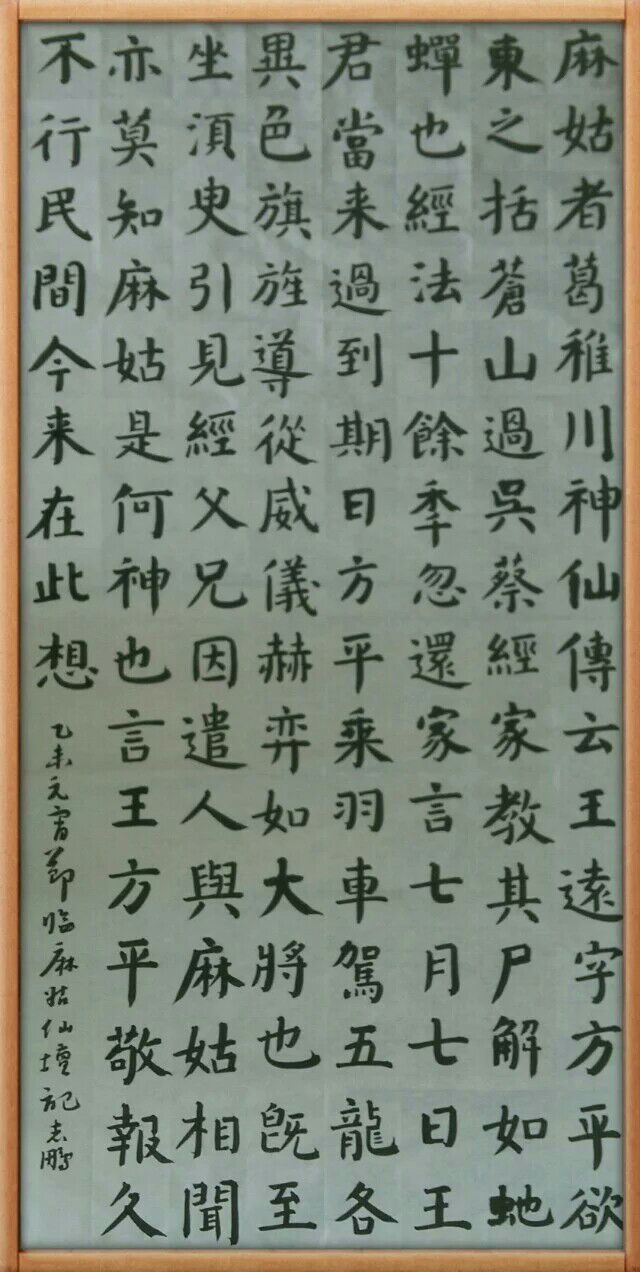 麻姑者葛稚川神仙傳云王遠字方平欲
東之括蒼山過吳蔡經家教其尸解如虵
蟬也經法十餘年忽還家言七月七日王
君當来過到期日方平乗羽車駕五龍各
異色旗旌導從威儀赫弈如大將也既至
坐須臾引見經父兄因遣人與麻姑相聞
亦莫知麻姑是何神也言王方平敬報久
不行民間今来在此想
乙未元宵節臨麻姑仙壇記志鵬